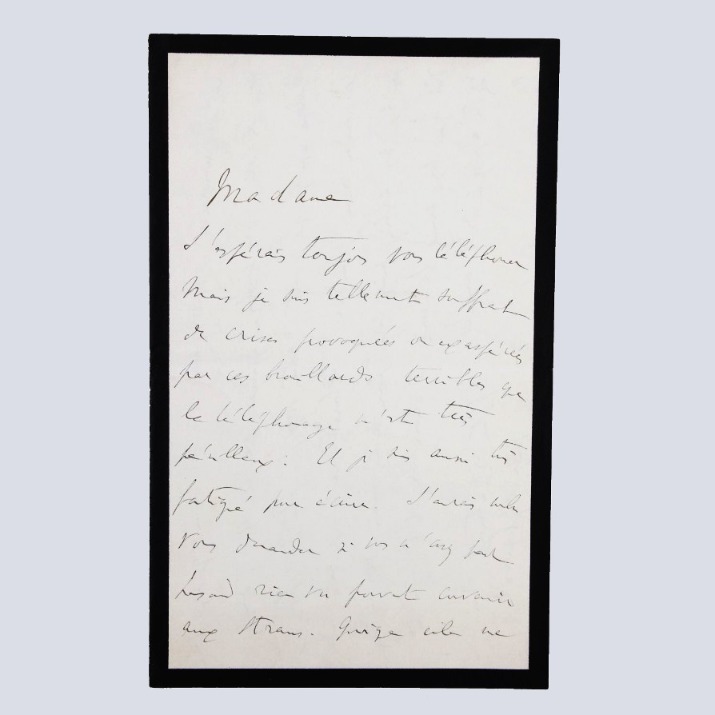 Madame
J'espérais toujours vous téléphoner
Mais je suis tellement souffrant
de crises provoquées ou exaspérées
par ces brouillards terribles que
le téléphonage m'est très
périlleux. Et je suis aussi très
fatigué pour écrire. J'aurais voulu
vous demander si vous n'avez par
hasard rien vu pouvant convenir
aux Straus. Quoique cela ne